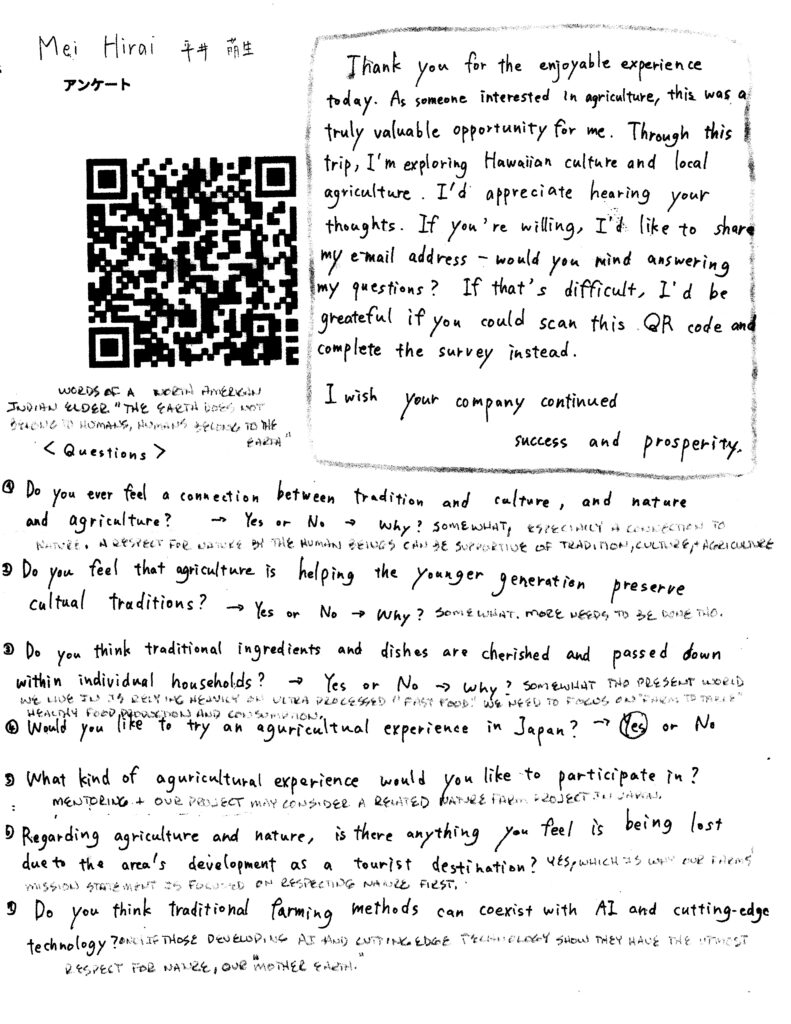 Mei Hirai 平井 萌生
アンケート
Thank you for the enjoyable experience
today. As someone interested in agriculture, this was a
truly valuable opportunity for me. Through this
trip, I'm exploring Hawaiian culture and local
agriculture. I'd appreciate hearing your
thoughts. If you're willing, I'd like to share
my e-mail address - would you mind answering
my questions? If that's difficult, I'd be
greateful if you could scan this QR code and
complete the survey instead.
I wish your company continued
success and prosperity.
WORDS OF A NORTH AMERICAN
INDIAN ELDER. "THE EARTH DOES NOT
BELONG TO HUMANS, HUMANS BELONG TO THE
EARTH"
< Questions >
① Do you ever feel a connection between tradition and culture, and nature
and agriculture? → Yes or No → Why? SOMEWHAT, ESPECIALLY A CONNECTION TO
NATURE. A RESPECT FOR NATURE BY THE HUMAN BEINGS CAN BE SUPPORTIVE OF TRADITION, CULTURE, + AGRICULTURE
② Do you feel that agriculture is helping the younger generation preserve
cultual traditions? → Yes or No → Why? SOMEWHAT. MORE NEEDS TO BE DONE THO.
③ Do you think traditional ingredients and dishes are cherished and passed down
within individual households? → Yes or No → Why? SOMEWHAT THO PRESENT WORLD
WE LIVE IN IS RELYING HEAVILY ON ULTRA PROCESSED "FAST FOOD." WE NEED TO FOCUS ON "FARM TO TABLE"
HEALTHY FOOD PRODUCTION AND CONSUMPTION.
④ Would you like to try an aguricultual experience in Japan? → Yes or No
⑤ What kind of aguricultural experience would you like to participate in?
MENTORING + OUR PROJECT MAY CONSIDER A RELATED NATURE FARM PROJECT IN JAPAN.
⑥ Regarding agriculture and nature, is there anything you feel is being lost
due to the area's development as a tourist destination? YES, WHICH IS WHY OUR FARMS'
MISSION STATEMENT IS FOCUSED ON RESPECTING NATURE FIRST.
⑦ Do you think traditional farming methods can coexist with AI and cutting-edge
technology? ONLY IF THOSE DEVELOPING AI AND CUTTING EDGE TECHNOLOGY SHOW THEY HAVE THE UTMOST
RESPECT FOR NATURE, OUR "MOTHER EARTH."